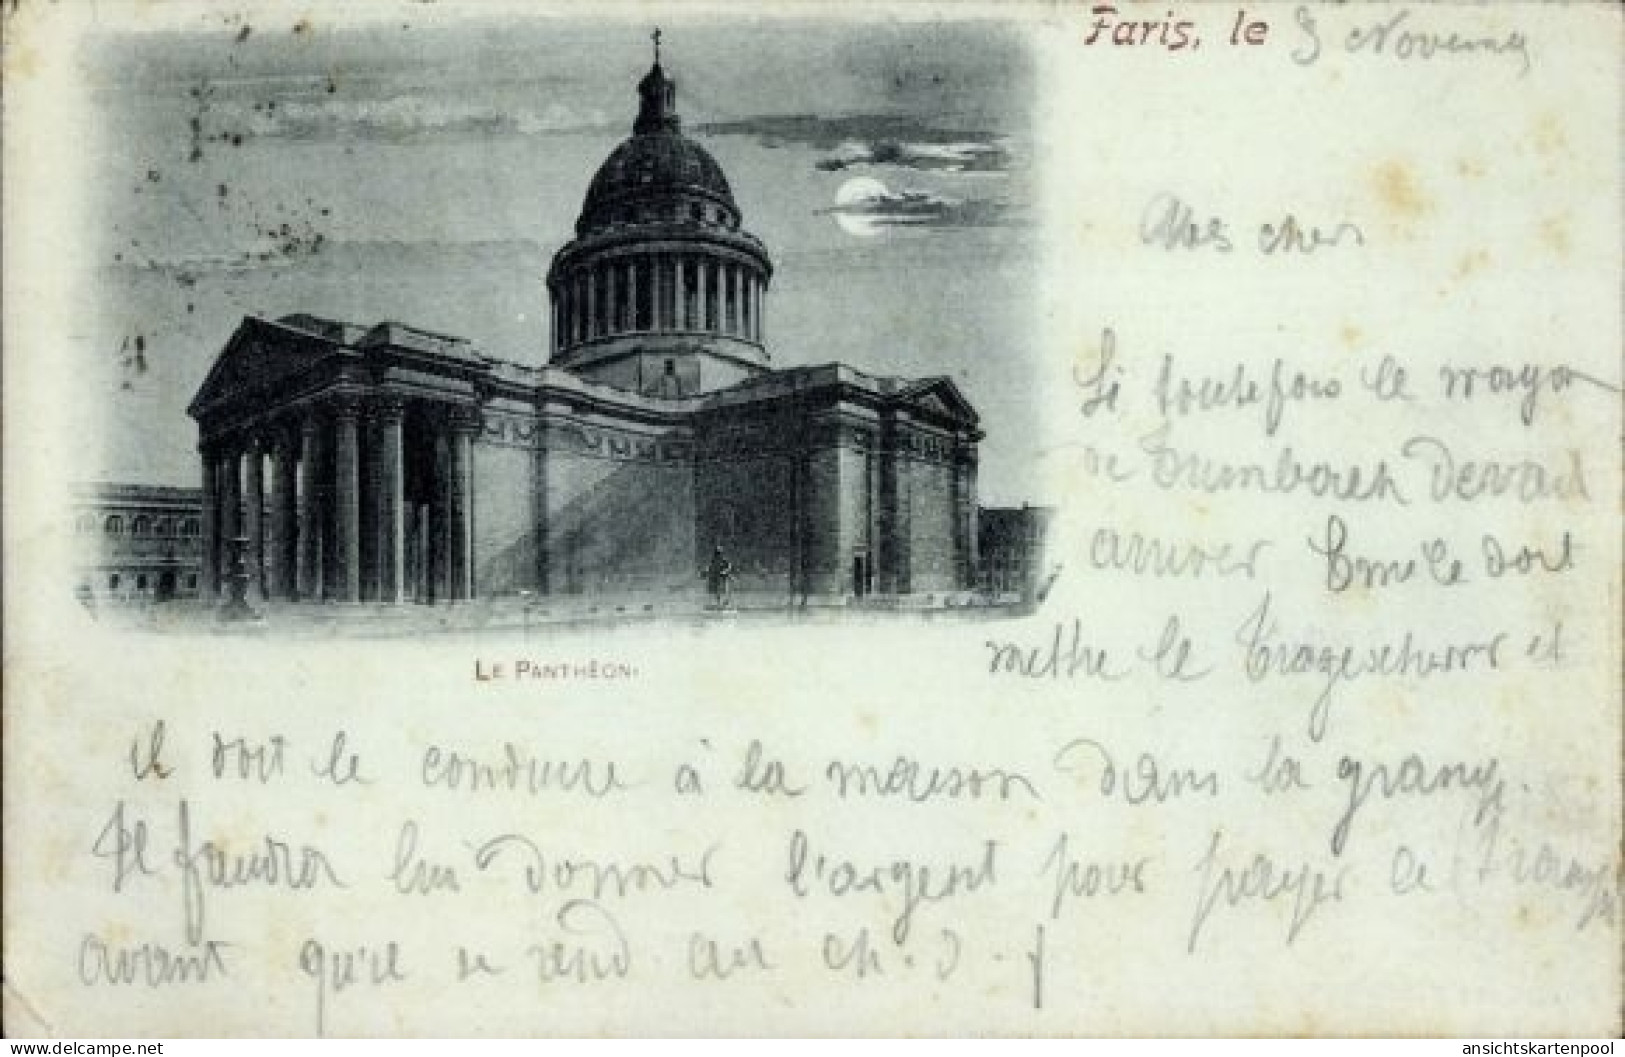 Paris, le 3 Novemb
Mes chers
Si toutefois le wagon
de devait
arriver Emile doit
metre le et
LE PANTHÉON.
il doit le conduire à la maison dans la grang.
Il faudra lui donner l'argent pour payer le
avant qu'il se rend au ch. d. f
delcampe.net
ansichtskartenpool